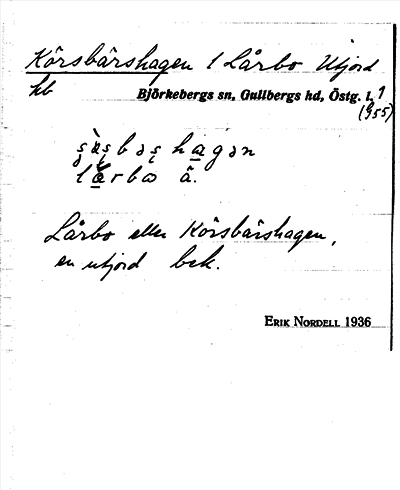 Körsbärshagen l Lårbo Utjord
hb Björkebergs sn, Gullbergs hd, Östg. l. 1
(955)
lårbo å.
Lårbo eller Körsbärshagen,
en utjord bek.
ERIK NORDELL 1936